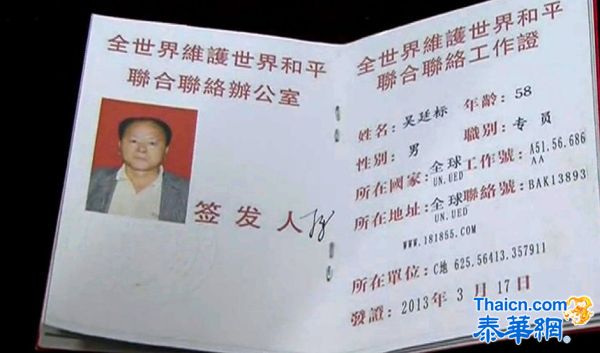 全世界維護世界和平
聯合聯絡辦公室
签发人
全世界維護世界和平
聯合聯絡工作證
姓名：吴廷标 年齡：58
性別：男 職別：专 员
所在國家：全球 工作號：A51.56.686
UN.UED AA
所在地址：全球 聯絡號：BAK13893
UN.UED
WWW.181855.COM
所在單位：C地 625.56413.357911
發證：2013年 3 月 17 日
Thaicn.com
泰華網